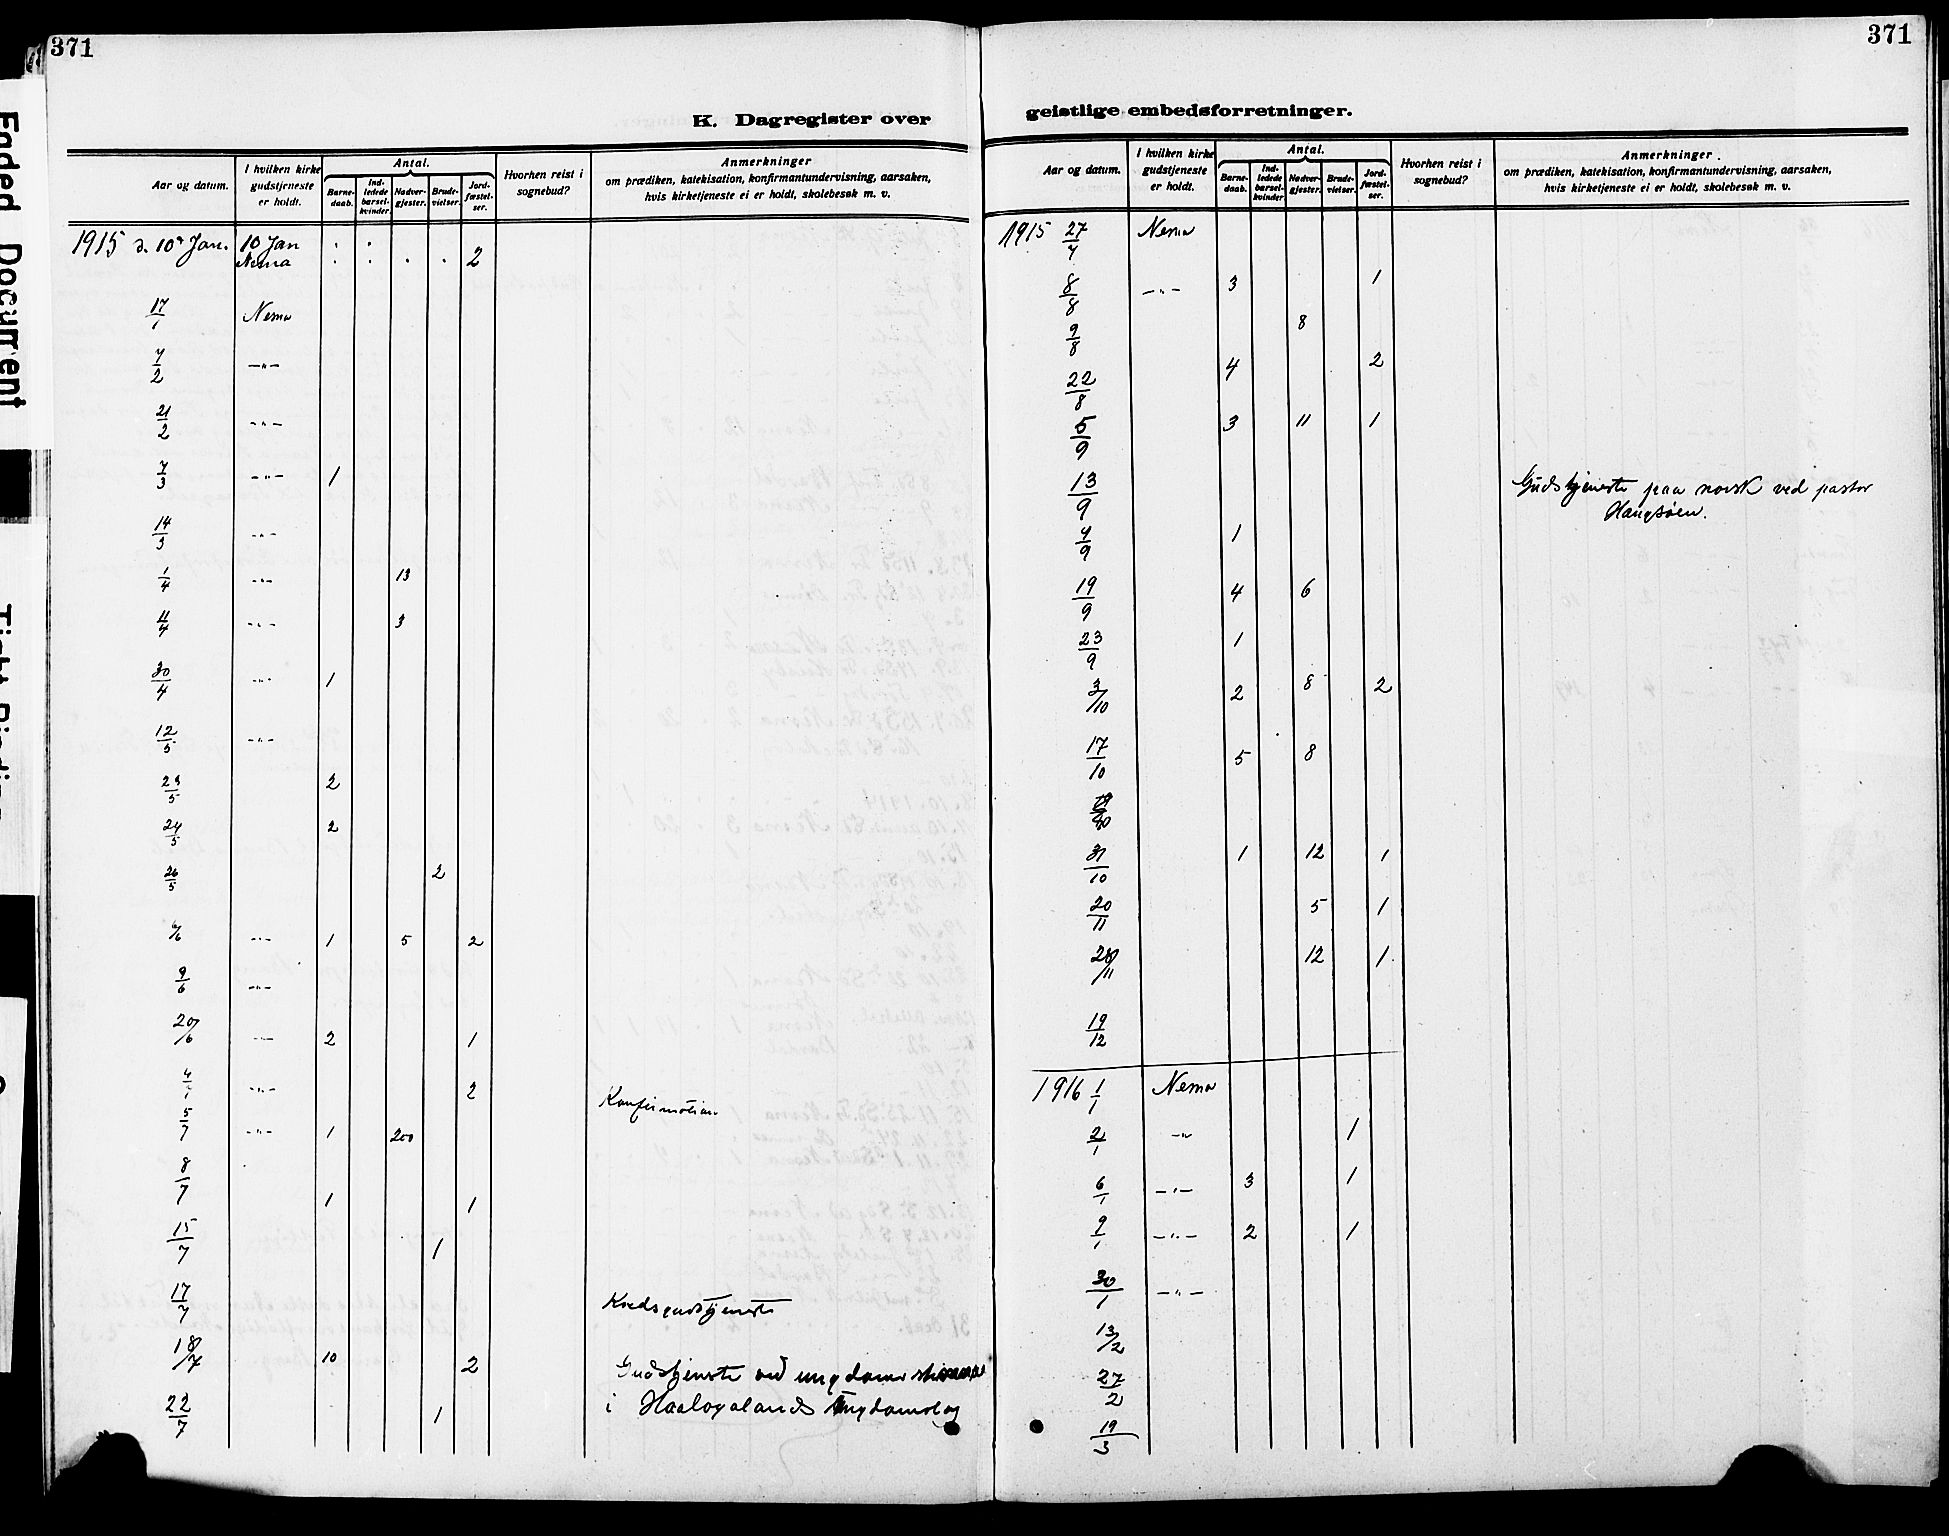 371
K. Dagregister over
Aar og datum.
I hvilken kirke gudstjeneste er holdt.
Antal.
Barne-daab.
Ind-ledede barsel-kvinder.
Nadver-gjester.
Brude-vielser.
Jord-fæstel-ser.
Hvorhen reist i sognebud?
Anmerkninger
om prædiken, katekisation, konfirmantundervisning, aarsaken,
hvis kirketjeneste ei er holdt, skolebesøk m. v.
1915 d. 10de Jan. 10 Jan
Nesna 2
17/1 Nesna
7/2 —"—
21/2 —"—
7/3 —"— 1
14/3 —"—
1/4 —"— 13
4/4 —"— 3
30/4 —"— 1
12/5 —"—
23/5 2
24/5 2
26/5 2
6/6 —"— 1 5 2
9/6 —"—
20/6 —"— 2 1
4/7 —"— 2 Konfirmation
5/7 —"— 1 200
8/7 1 1
15/7 1
17/7 Kredsgudstjeneste
18/7 10 2 Gudstjeneste ved ungdomsstevne
22/7 1 i Haalogalands Ungdomslag
371
geistlige embedsforretninger.
Aar og datum.
I hvilken kirke gudstjeneste er holdt.
Antal.
Barne-daab.
Ind-ledede barsel-kvinder
Nadver-gjester.
Brude-vielser.
Jord-fæstel-ser.
Hvorhen reist i sognebud?
Anmerkninger.
om prædiken, katekisation, konfirmantundervisning, aarsaken,
hvis kirketjeneste ei er holdt, skolebesøk m. v.
1915 27/7 Nesna
8/8 —"— 3 1
9/8 8
22/8 4 2
5/9 3 11 1
13/9 Gudstjeneste paa norsk ved pastor
Haugsøen.
9/9 1
19/9 4 6
23/9 1
3/10 2 8 2
17/10 5 8
31/10 1 12 1
20/11 5 1
28/11 12 1
19/12
1916 1/1 Nesna
2/1 —"— 1
6/1 —"— 3 1
9/1 —"— 2 1
30/1 —"—
13/2
27/2
19/3